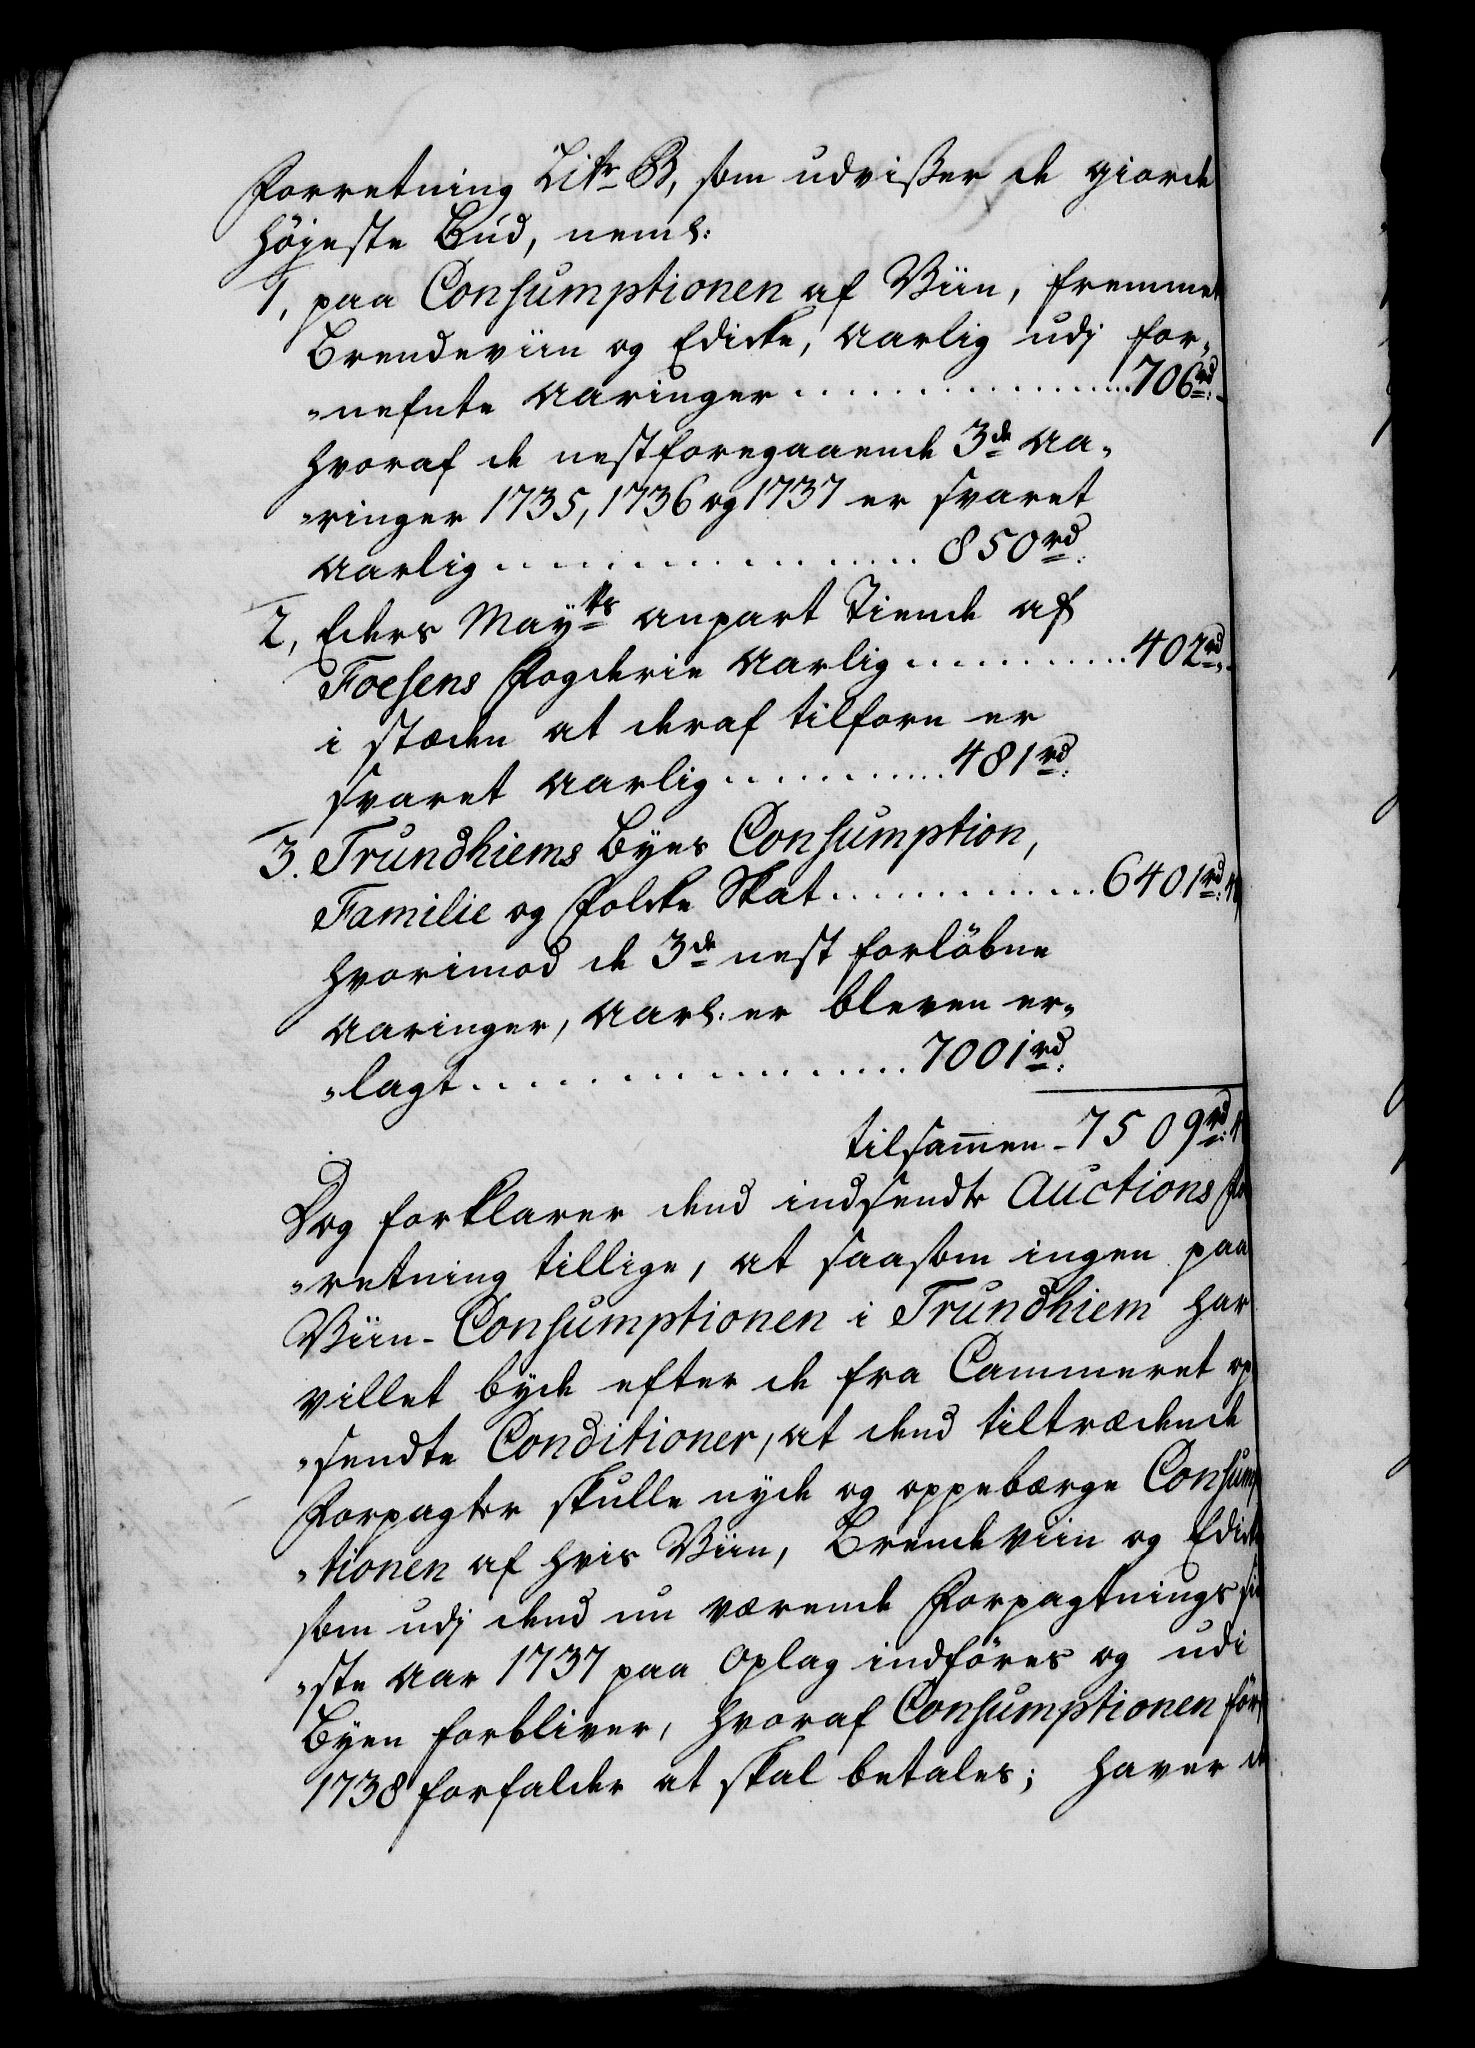 Forretning Litr B, som udvißer de giorde
höÿeste Bud, neml:
1, paa Consumptionen af Viin, fremmet
Brendeviin og Edicke, Aarlig udj for„
„nefnte Aaringer . . . . . . . . . . . . . . . 706rd:
hvoraf de nestforegaaende 3de Aa„
„ringer 1735, 1736 og 1737 er svaret
Aarlig . . . . . . . . . . . . . . . 850rd:
2, Eders Maÿts anpart Tiende af
Foesens Fogderie Aarlig . . . . . . . . . . . 402rd:
i stæden at deraf tilforn er
svaret Aarlig . . . . . . . . . . . 481rd:
3. Trundhiems Byes Consumption,
Familie og Folcke Skat . . . . . . . . . . . . 6401rd:
hvorimod de 3de nest forløbne
Aaringer, Aarl: er bleven er„
„lagt . . . . . . . . . . . . . . . . . 7001rd:
tilsam̅en - 7509rd:
Dog forklarer dend indsendte Auctions For
„retning tillige, at saasom ingen paa
Viin-Consumptionen i Trundhiem har
villet byde efter de fra Cammeret op
„sendte Conditioner, at dend tiltrædende
Forpagter skulle nyde og oppebærge Consump
„tionen af hvis Viin, Brendeviin og Edicke
som udj dend nu værende Forpagtnings si
„ste Aar 1737 paa Oplag indföres og udi
Byen forbliver, hvoraf Consumptionen först
1738 forfalder at skal betales; haver de